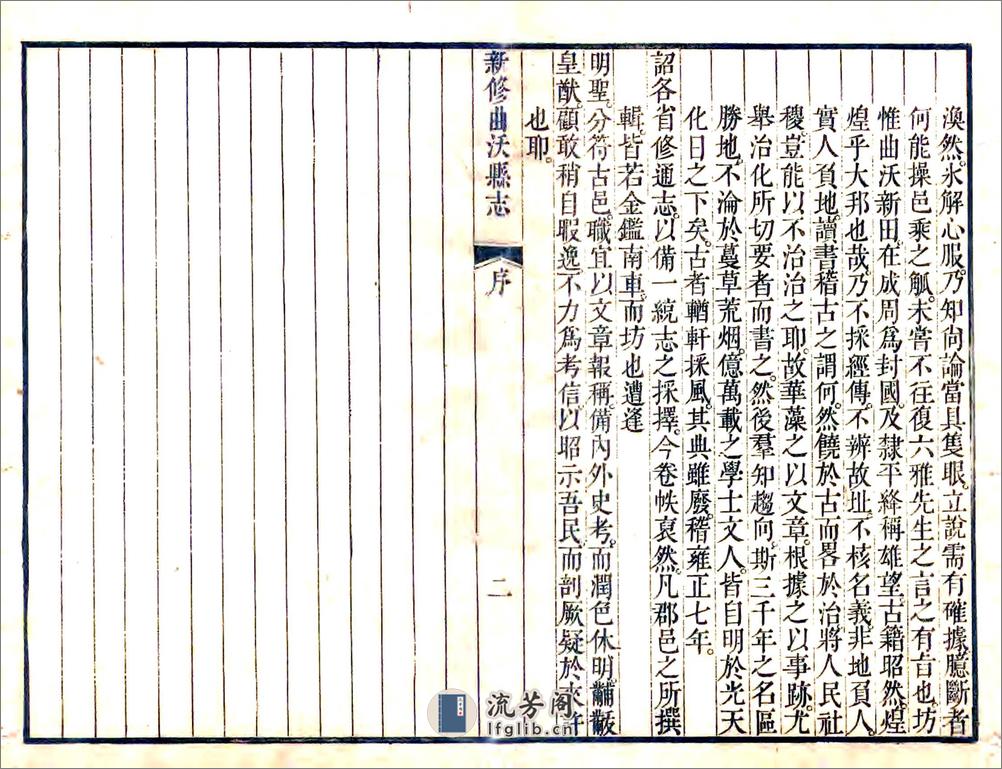 渙然氷解心服。乃知尚論當具隻眼。立說需有確據。臆斷者
何能操邑乘之觚。未嘗不往復六雅先生之言之有旨也。坊
惟曲沃新田。在成周爲封國。及隸平絳稱雄望。古籍昭然。煌
煌乎大邦也哉。乃不採經傳。不辨故址。不核名義。非地負人。
實人負地。讀書稽古之謂何。然饒於古而畧於治。將人民社
稷。豈能以不治治之耶。故華藻之以文章。根據之以事跡。尤
舉治化所切要者而書之。然後羣知趨向。斯三千年之名區
勝地。不淪於蔓草荒烟。億萬載之學士文人。皆自明於光天
化日之下矣。古者輶軒採風。其典雖廢。稽雍正七年。
詔各省修通志。以備一統志之採擇。今卷帙裒然。凡郡邑之所撰
輯。皆若金鑑南車。而坊也遭逢
明聖。分符古邑。職宜以文章報稱。備內外史考。而潤色休明。黼黻
皇猷。顧敢稍自暇逸。不力爲考信。以昭示吾民。而剖厥疑於來許
也耶。
新修曲沃縣志 序 二
流芳阁
lfglib.cn